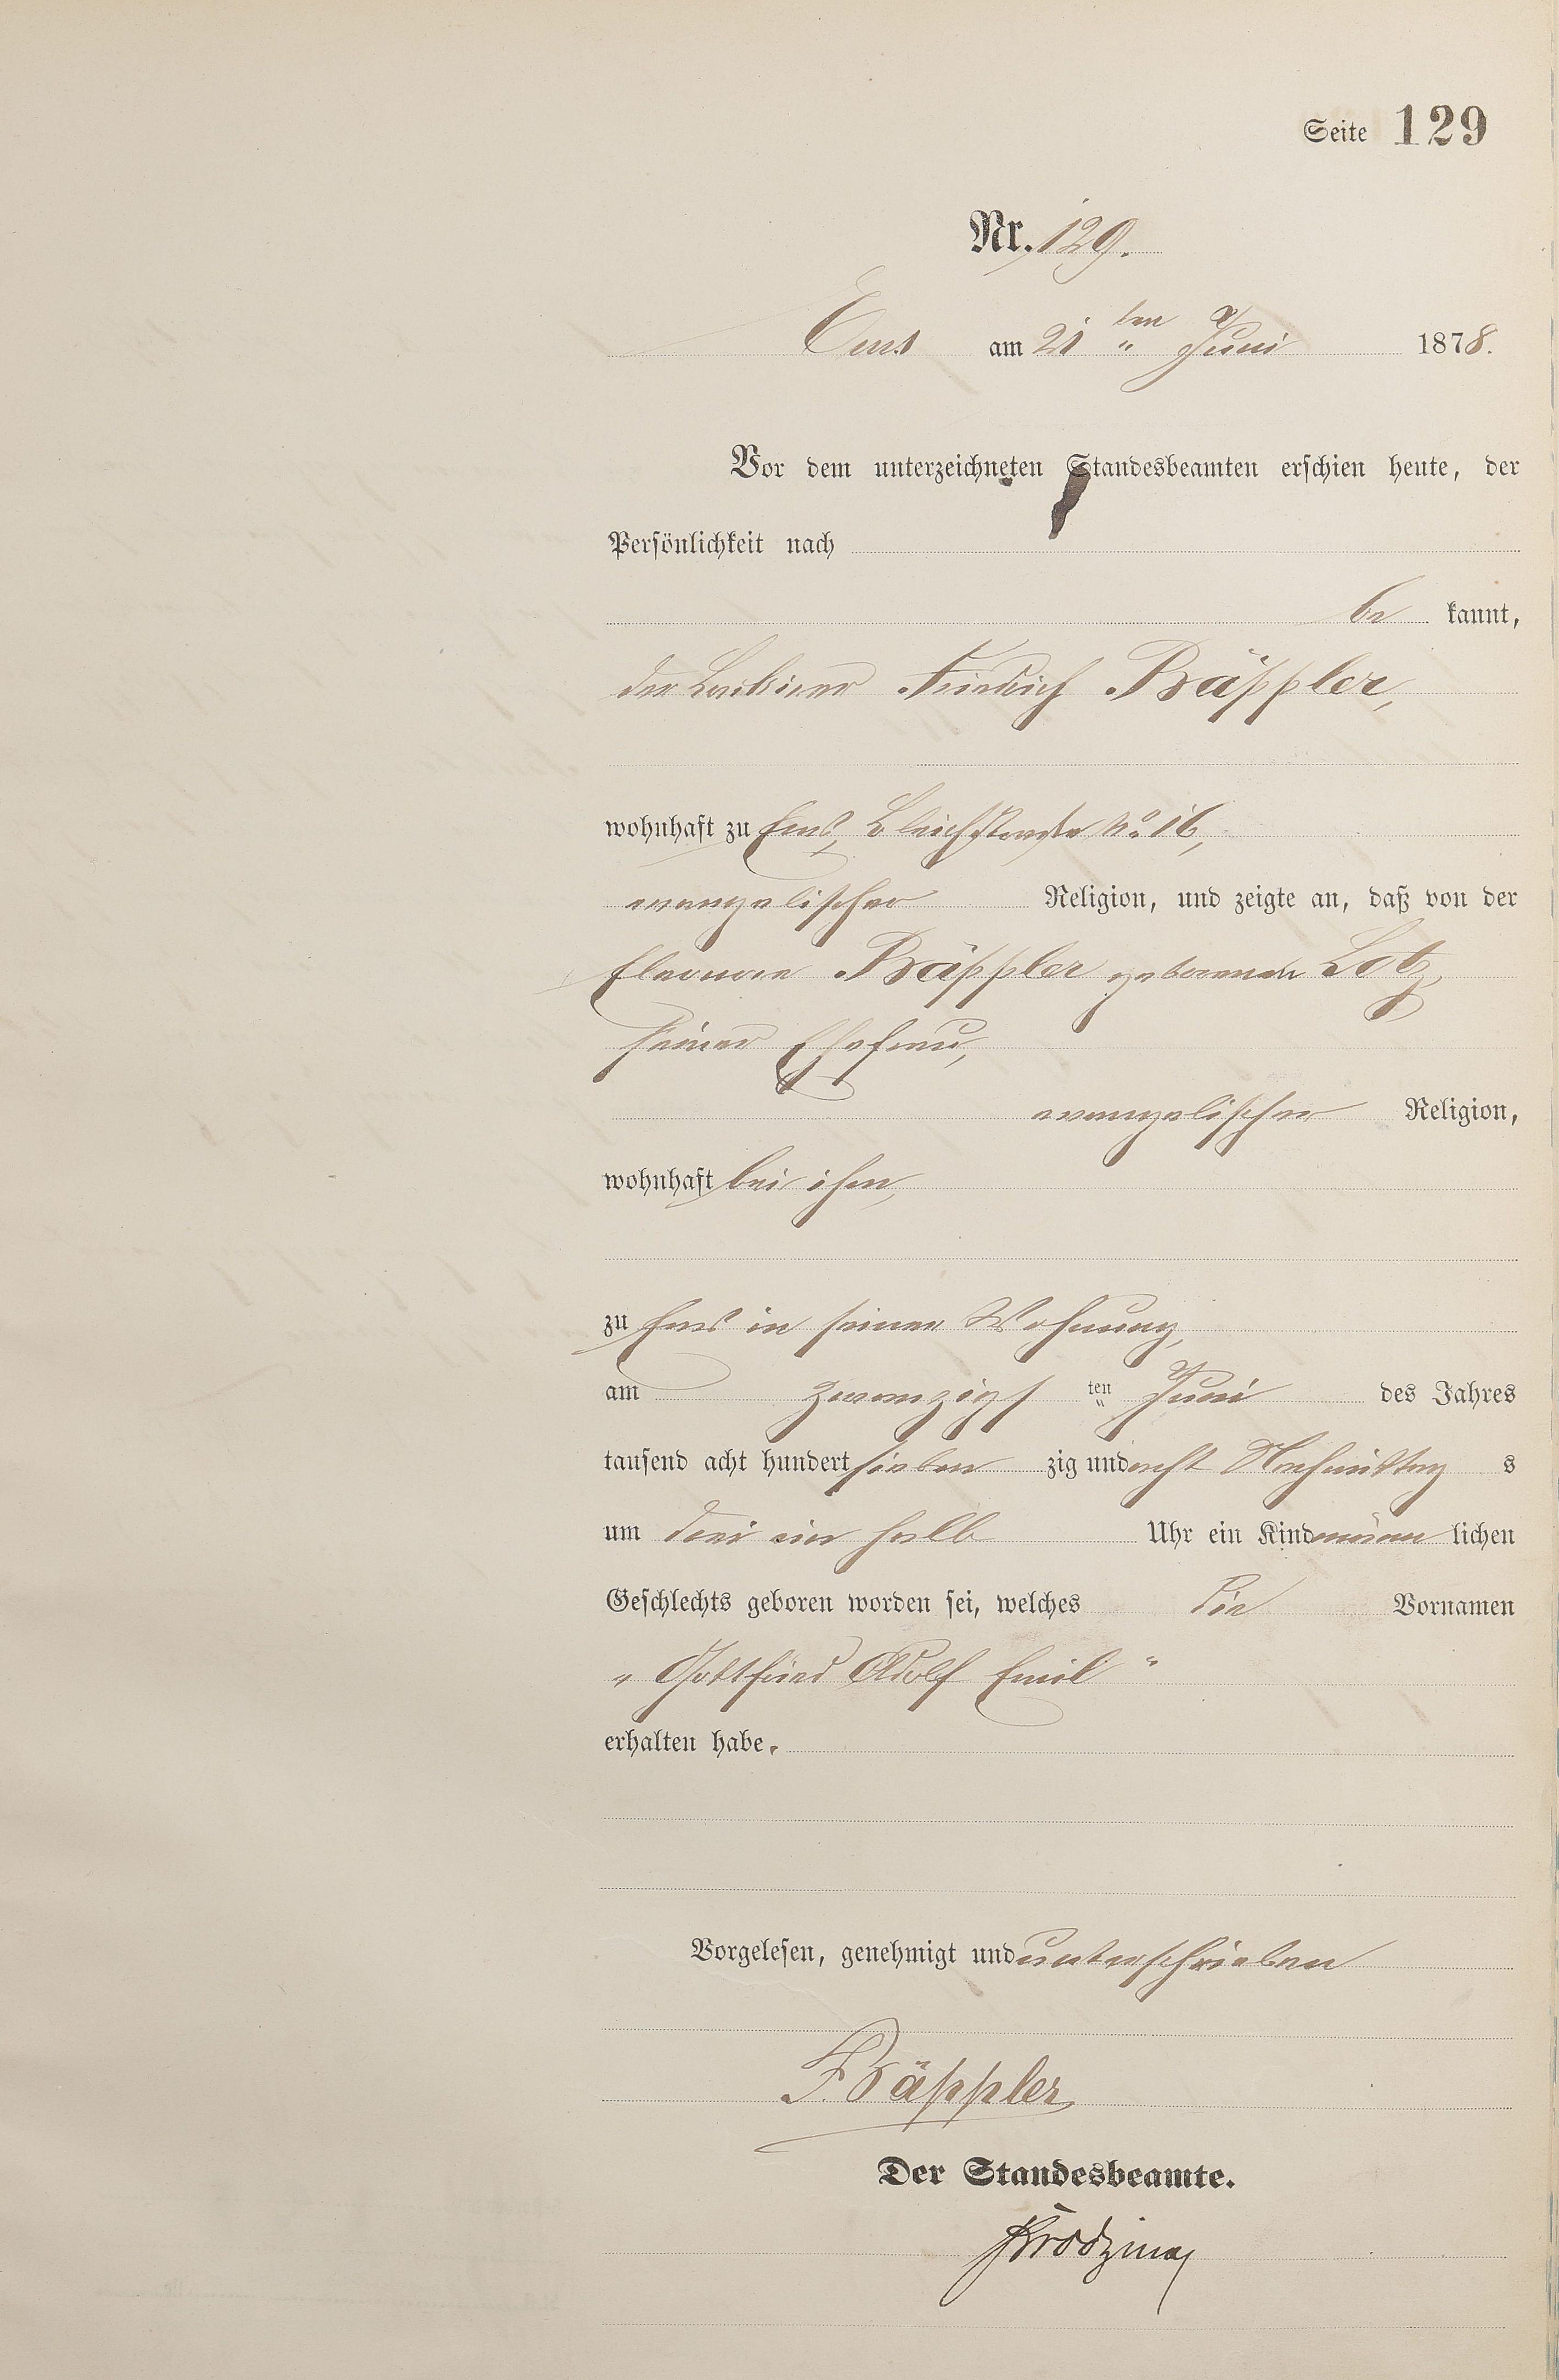 Seite 129
Nr. 129.
Ems am 21 ten Juni 1878.
Vor dem unterzeichneten Standesbeamten erschien heute, der
Persönlichkeit nach
be kannt,
der Friedrich Bräppler,
wohnhaft zu Ems, Bleichstraße No 16,
evangelischer Religion, und zeigte an, daß von der
Eleonore Bräppler geborenen Lotz,
seiner Ehefrau,
evangelischer Religion,
wohnhaft bei ihm,
zu Ems in seiner Wohnung,
am zwanzigs ten Juni des Jahres
tausend acht hundert sieben zig und acht Nachmittag s
um drei ein halb Uhr ein Kind männ lichen
Geschlechts geboren worden sei, welches die Vornamen
„ Gottfried Adolf Emil "
erhalten habe.
Vorgelesen, genehmigt und unterschrieben
F. Bräppler
Der Standesbeamte.